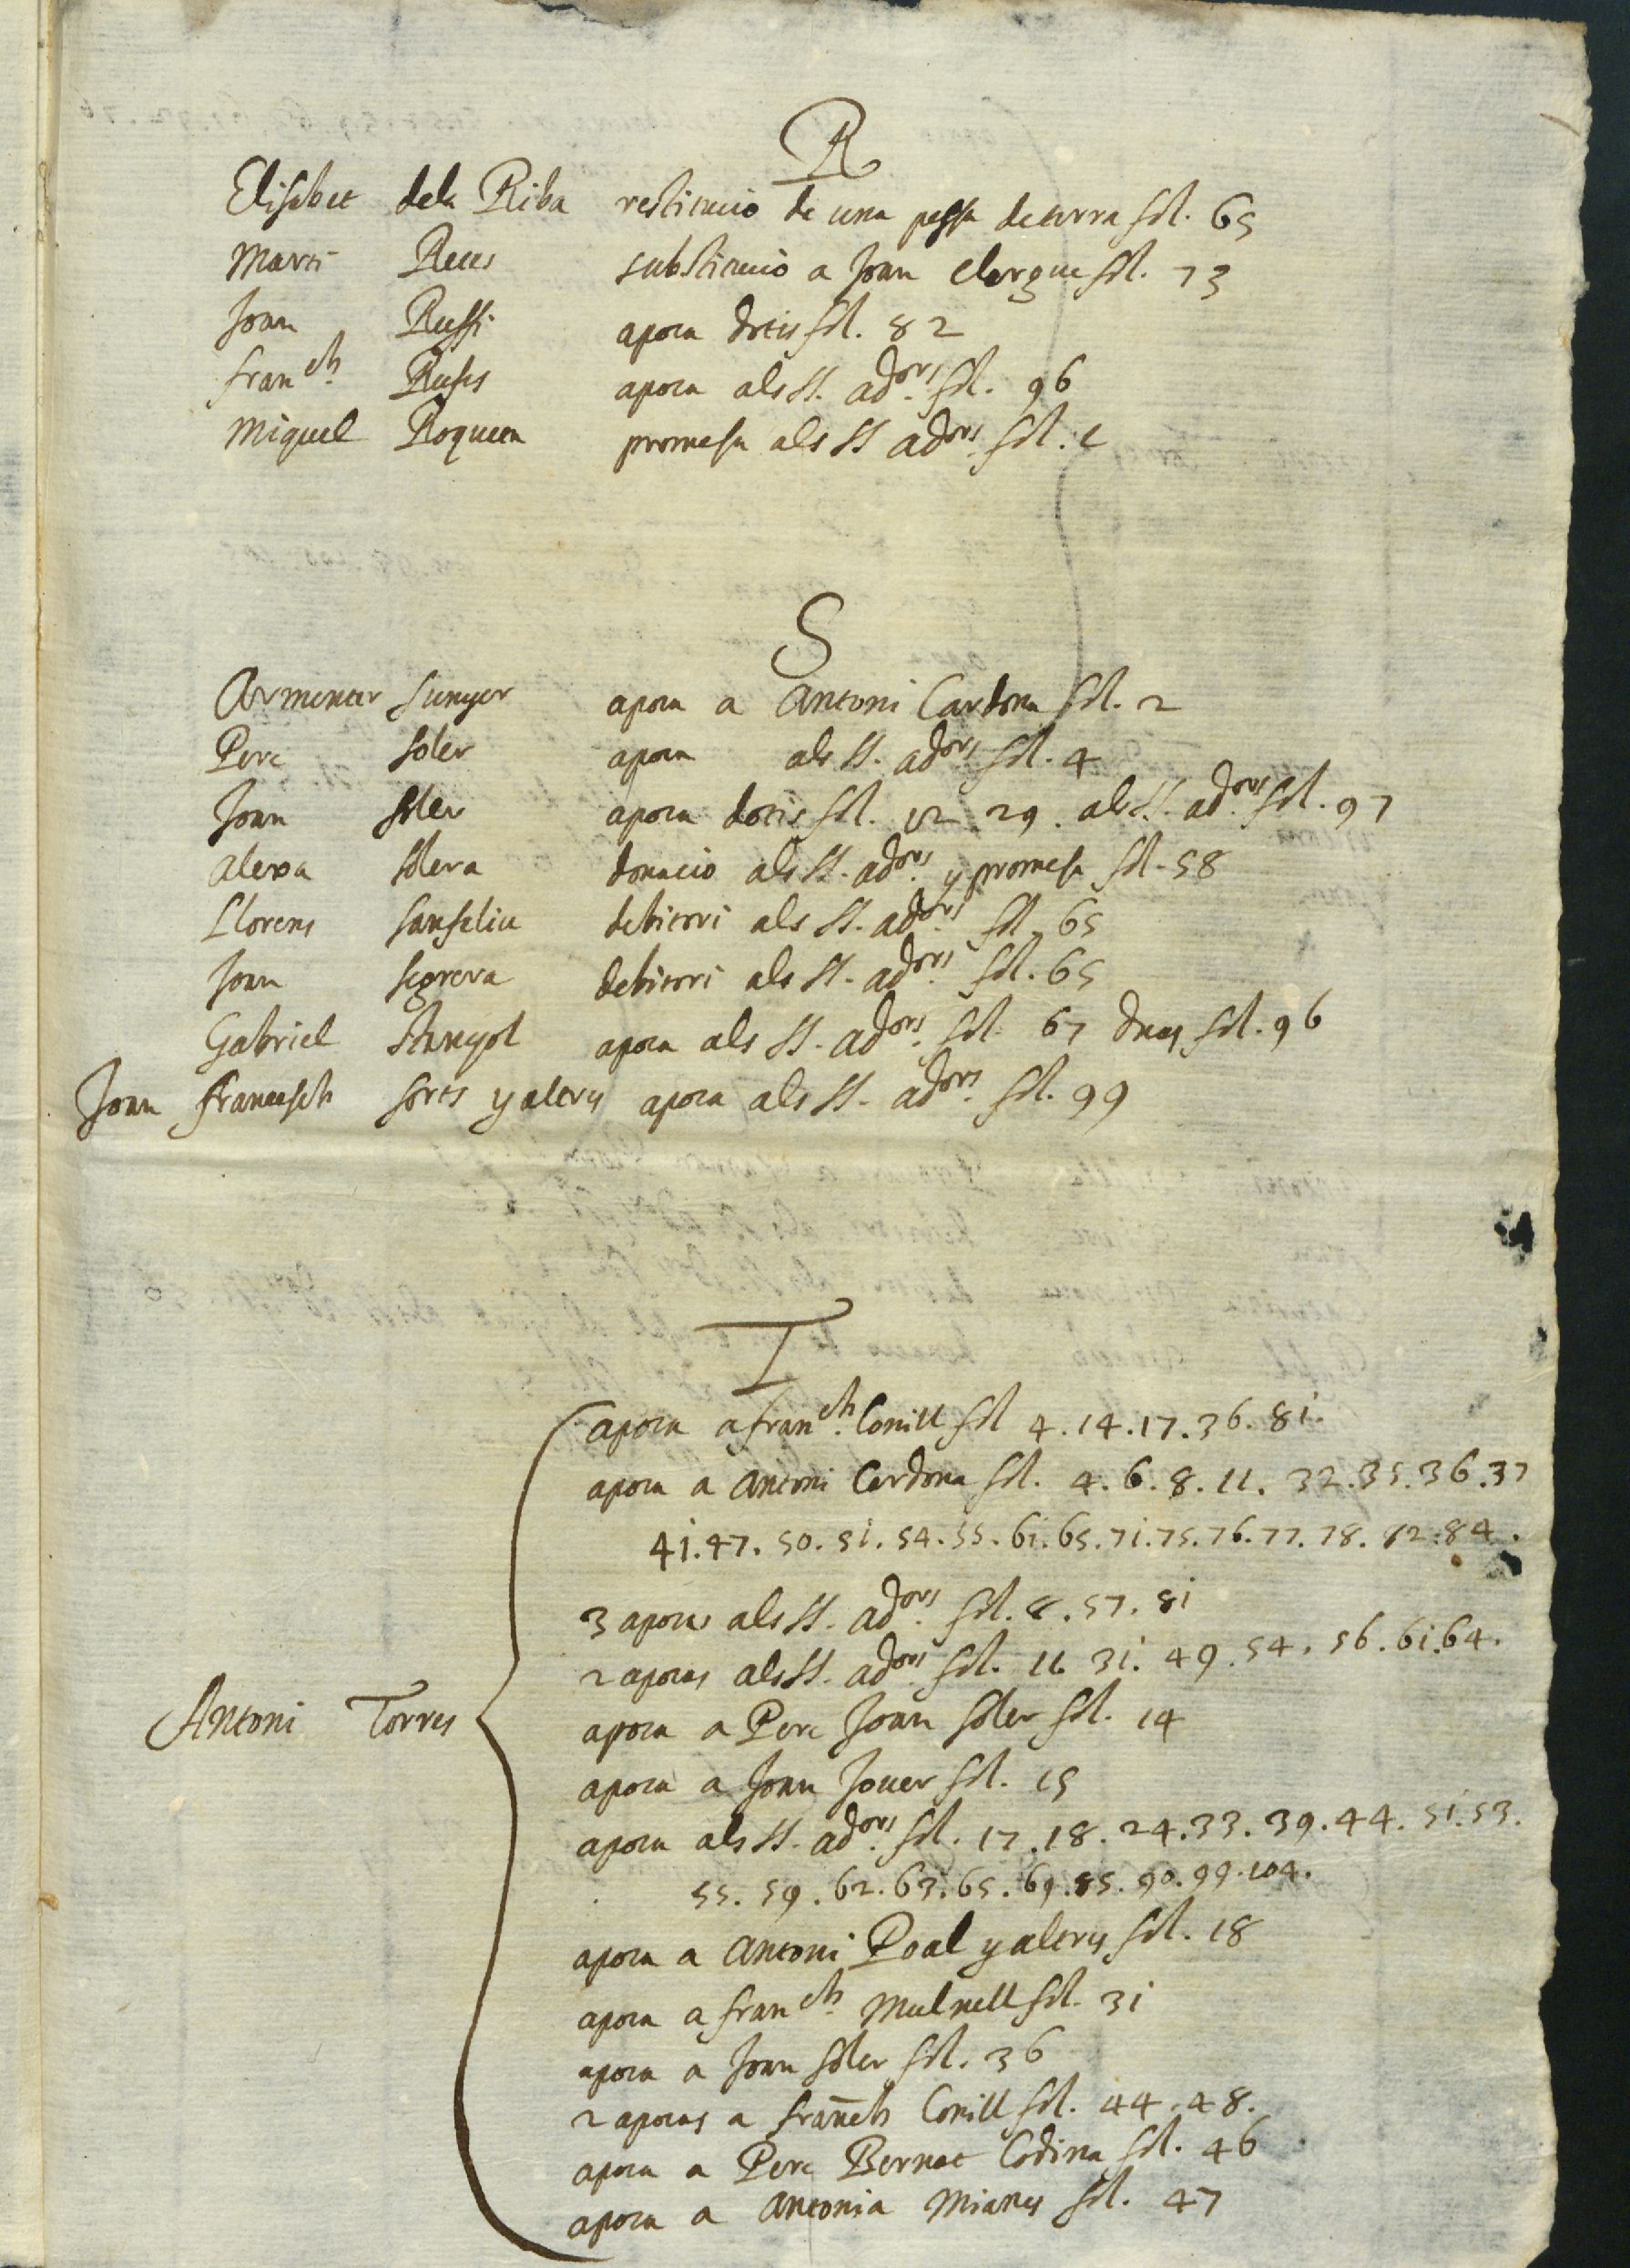 R
Elisabet dela Riba restitucio de una pessa de terra fol. 65
Marti Reus substitucio a Joan Clergue fol. 73
Joan Russi apoca dotis fol. 82
franch. Rufis apoca als SS. adors. fol. 96
Miquel Roqueta promesa als SS adors. fol. 1
S
Armenter Sunyer apoca a Antoni Cardona fol. 2
Pere Soler apoca als SS. adors. fol. 4
Joan Soler apoca dotis fol. 12. 29. als SS. adors. fol. 97
Alexa Solera donacio als SS. adors. y promesa fol. 58
Llorens Sanfeliu debitori als SS. adors. fol. 65
Joan Segrera debitori als SS. adors. fol. 65
Gabriel Stanyol apoca als SS. adors. fol. 67 dues fol. 96
Joan francesch Sorts y altres apoca als SS. adors. fol. 99
T
apoca a franch. Conill fol 4. 14. 17. 36. 81.
apoca a Antoni Cardona fol. 4. 6. 8. 11. 32. 35. 36. 37
41. 47. 50. 51. 54. 55. 61. 65. 71. 75. 76. 77. 78. 82. 84.
3 apocas als SS. adors. fol. 8. 57. 81
2 apocas als SS. adors. fol. 11. 31. 49. 54. 56. 61. 64.
Antoni Torres apoca a Pere Joan Soler fol. 14
apoca a Joan Jouer fol. 15
apoca als SS. adors. fol. 17. 18. 24. 33. 39. 44. 51. 53.
55. 59. 62. 63. 65. 69. 85. 90. 99. 104.
apoca a Antoni Poal y altres fol. 18
apoca a franch. Mulnell fol. 31
apoca a Joan Soler fol. 36
2 apocas a franch Conill fol. 44. 48.
apoca a Pere Bernat Codina fol. 46
apoca a Antonia Mianes fol. 47